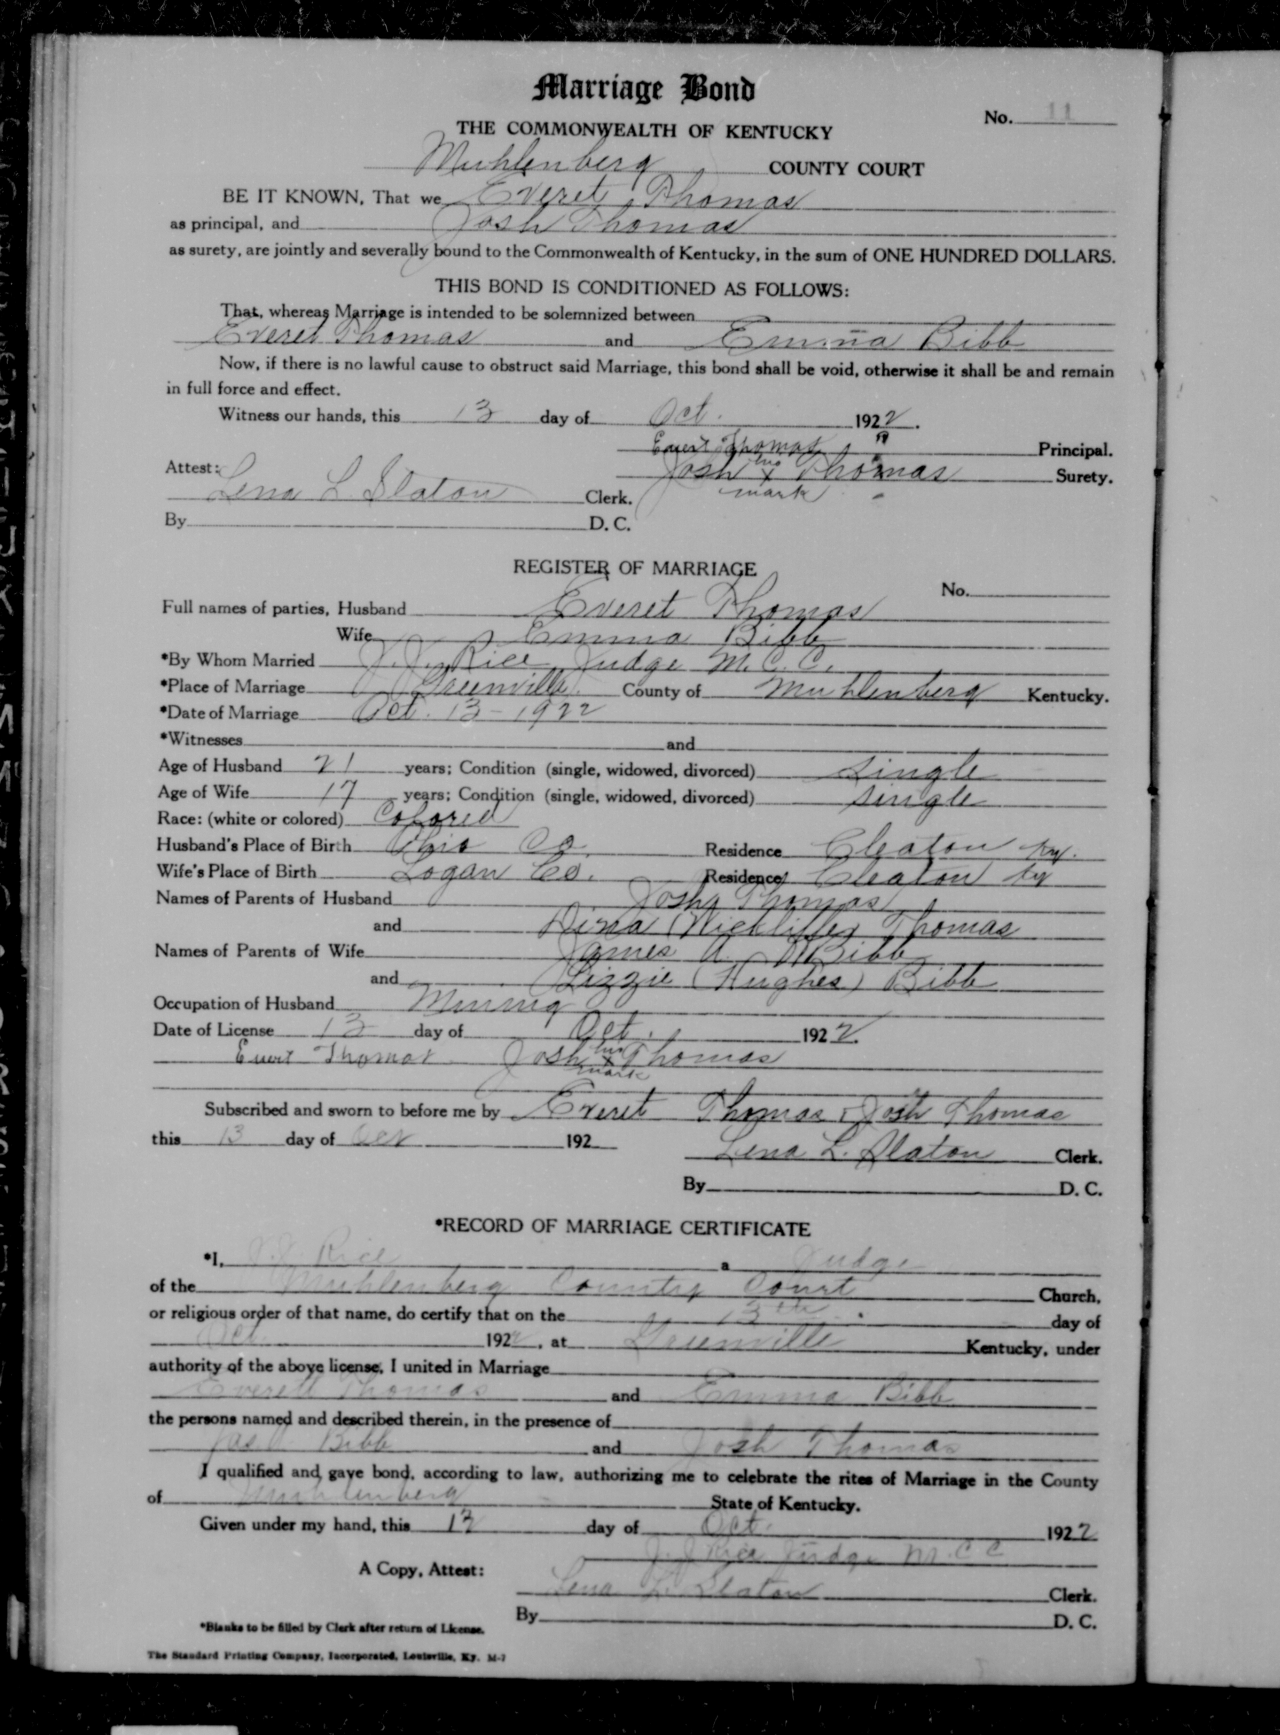 Marriage Bond
No. 11
THE COMMONWEALTH OF KENTUCKY
Muhlenberg COUNTY COURT
BE IT KNOWN, That we Everet Thomas
as principal, and Josh Thomas
as surety, are jointly and severally bound to the Commonwealth of Kentucky, in the sum of ONE HUNDRED DOLLARS.
THIS BOND IS CONDITIONED AS FOLLOWS:
That, whereas Marriage is intended to be solemnized between
Everet Thomas and Emma Bibb
Now, if there is no lawful cause to obstruct said Marriage, this bond shall be void, otherwise it shall be and remain
in full force and effect.
Witness our hands, this 13 day of Oct. 1922.
Thomas Principal.
Attest: Josh his x mark Thomas Surety.
Lena L. Slaton Clerk.
By D. C.
REGISTER OF MARRIAGE
No.
Full names of parties, Husband Everet Thomas
Wife Emma Bibb
*By Whom Married J. J. Rice Judge M. C. C.
*Place of Marriage Greenville County of Muhlenberg Kentucky.
*Date of Marriage Oct. 13 - 1922
*Witnesses and
Age of Husband 21 years; Condition (single, widowed, divorced) single
Age of Wife 17 years; Condition (single, widowed, divorced) single
Race: (white or colored) Colored
Husband's Place of Birth Ohio Co. Residence Cleaton Ky.
Wife's Place of Birth Logan Co. Residence Cleaton Ky
Names of Parents of Husband Josh Thomas
and Dina (Wickliffe) Thomas
Names of Parents of Wife James A. Bibb
and Lizzie (Hughes) Bibb
Occupation of Husband Mining
Date of License 13 day of Oct. 1922.
Thomas Josh his x mark Thomas
Subscribed and sworn to before me by Everet Thomas & Josh Thomas
this 13 day of Oct 192
Lena L. Slaton Clerk.
By D. C.
*RECORD OF MARRIAGE CERTIFICATE
*I, J. J. Rice a Judge
of the Muhlenberg Country Court Church,
or religious order of that name, do certify that on the 13th day of
Oct. 1922, at Greenville Kentucky, under
authority of the above license, I united in Marriage
Everett Thomas and Emma Bibb
the persons named and described therein, in the presence of
Jas A Bibb and Josh Thomas
I qualified and gave bond, according to law, authorizing me to celebrate the rites of Marriage in the County
of Muhlenberg State of Kentucky.
Given under my hand, this 13 day of Oct. 1922
J. J. Rice Judge M. C C
A Copy, Attest:
Lena L. Slaton Clerk.
By D. C.
*Blanks to be filled by Clerk after return of License.
The Standard Printing Company, Incorporated, Louisville, Ky. M-7